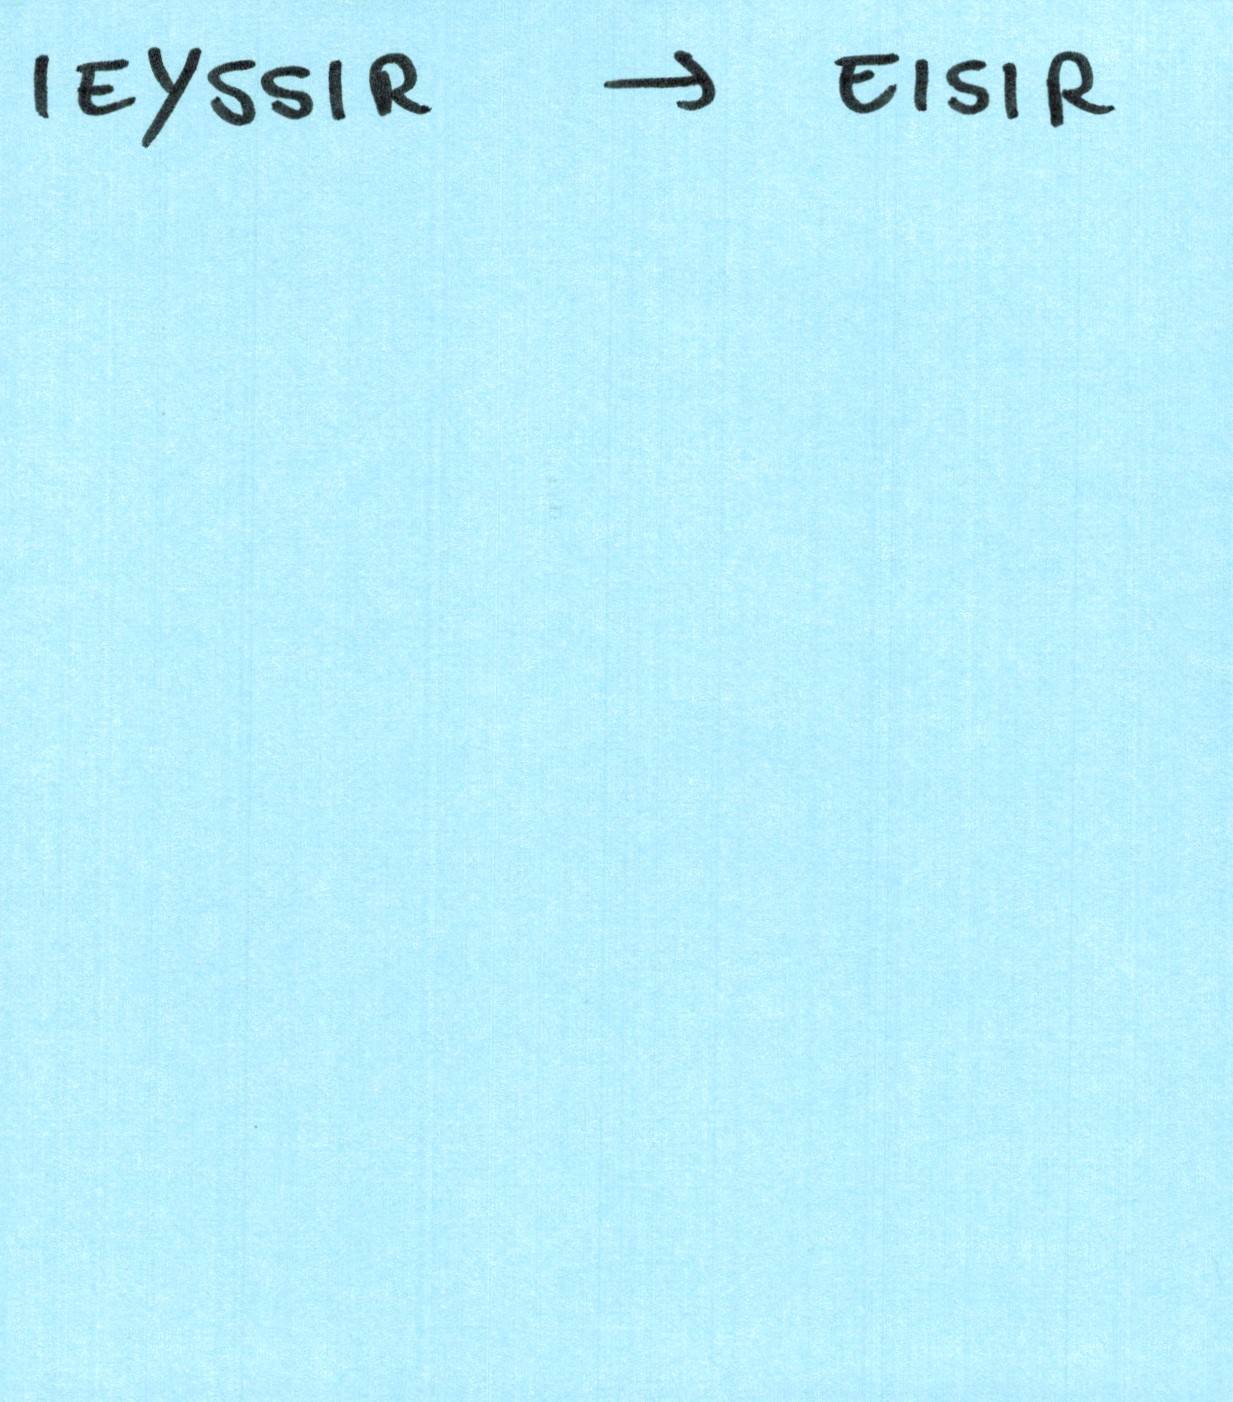 IEYSSIR → EISIR